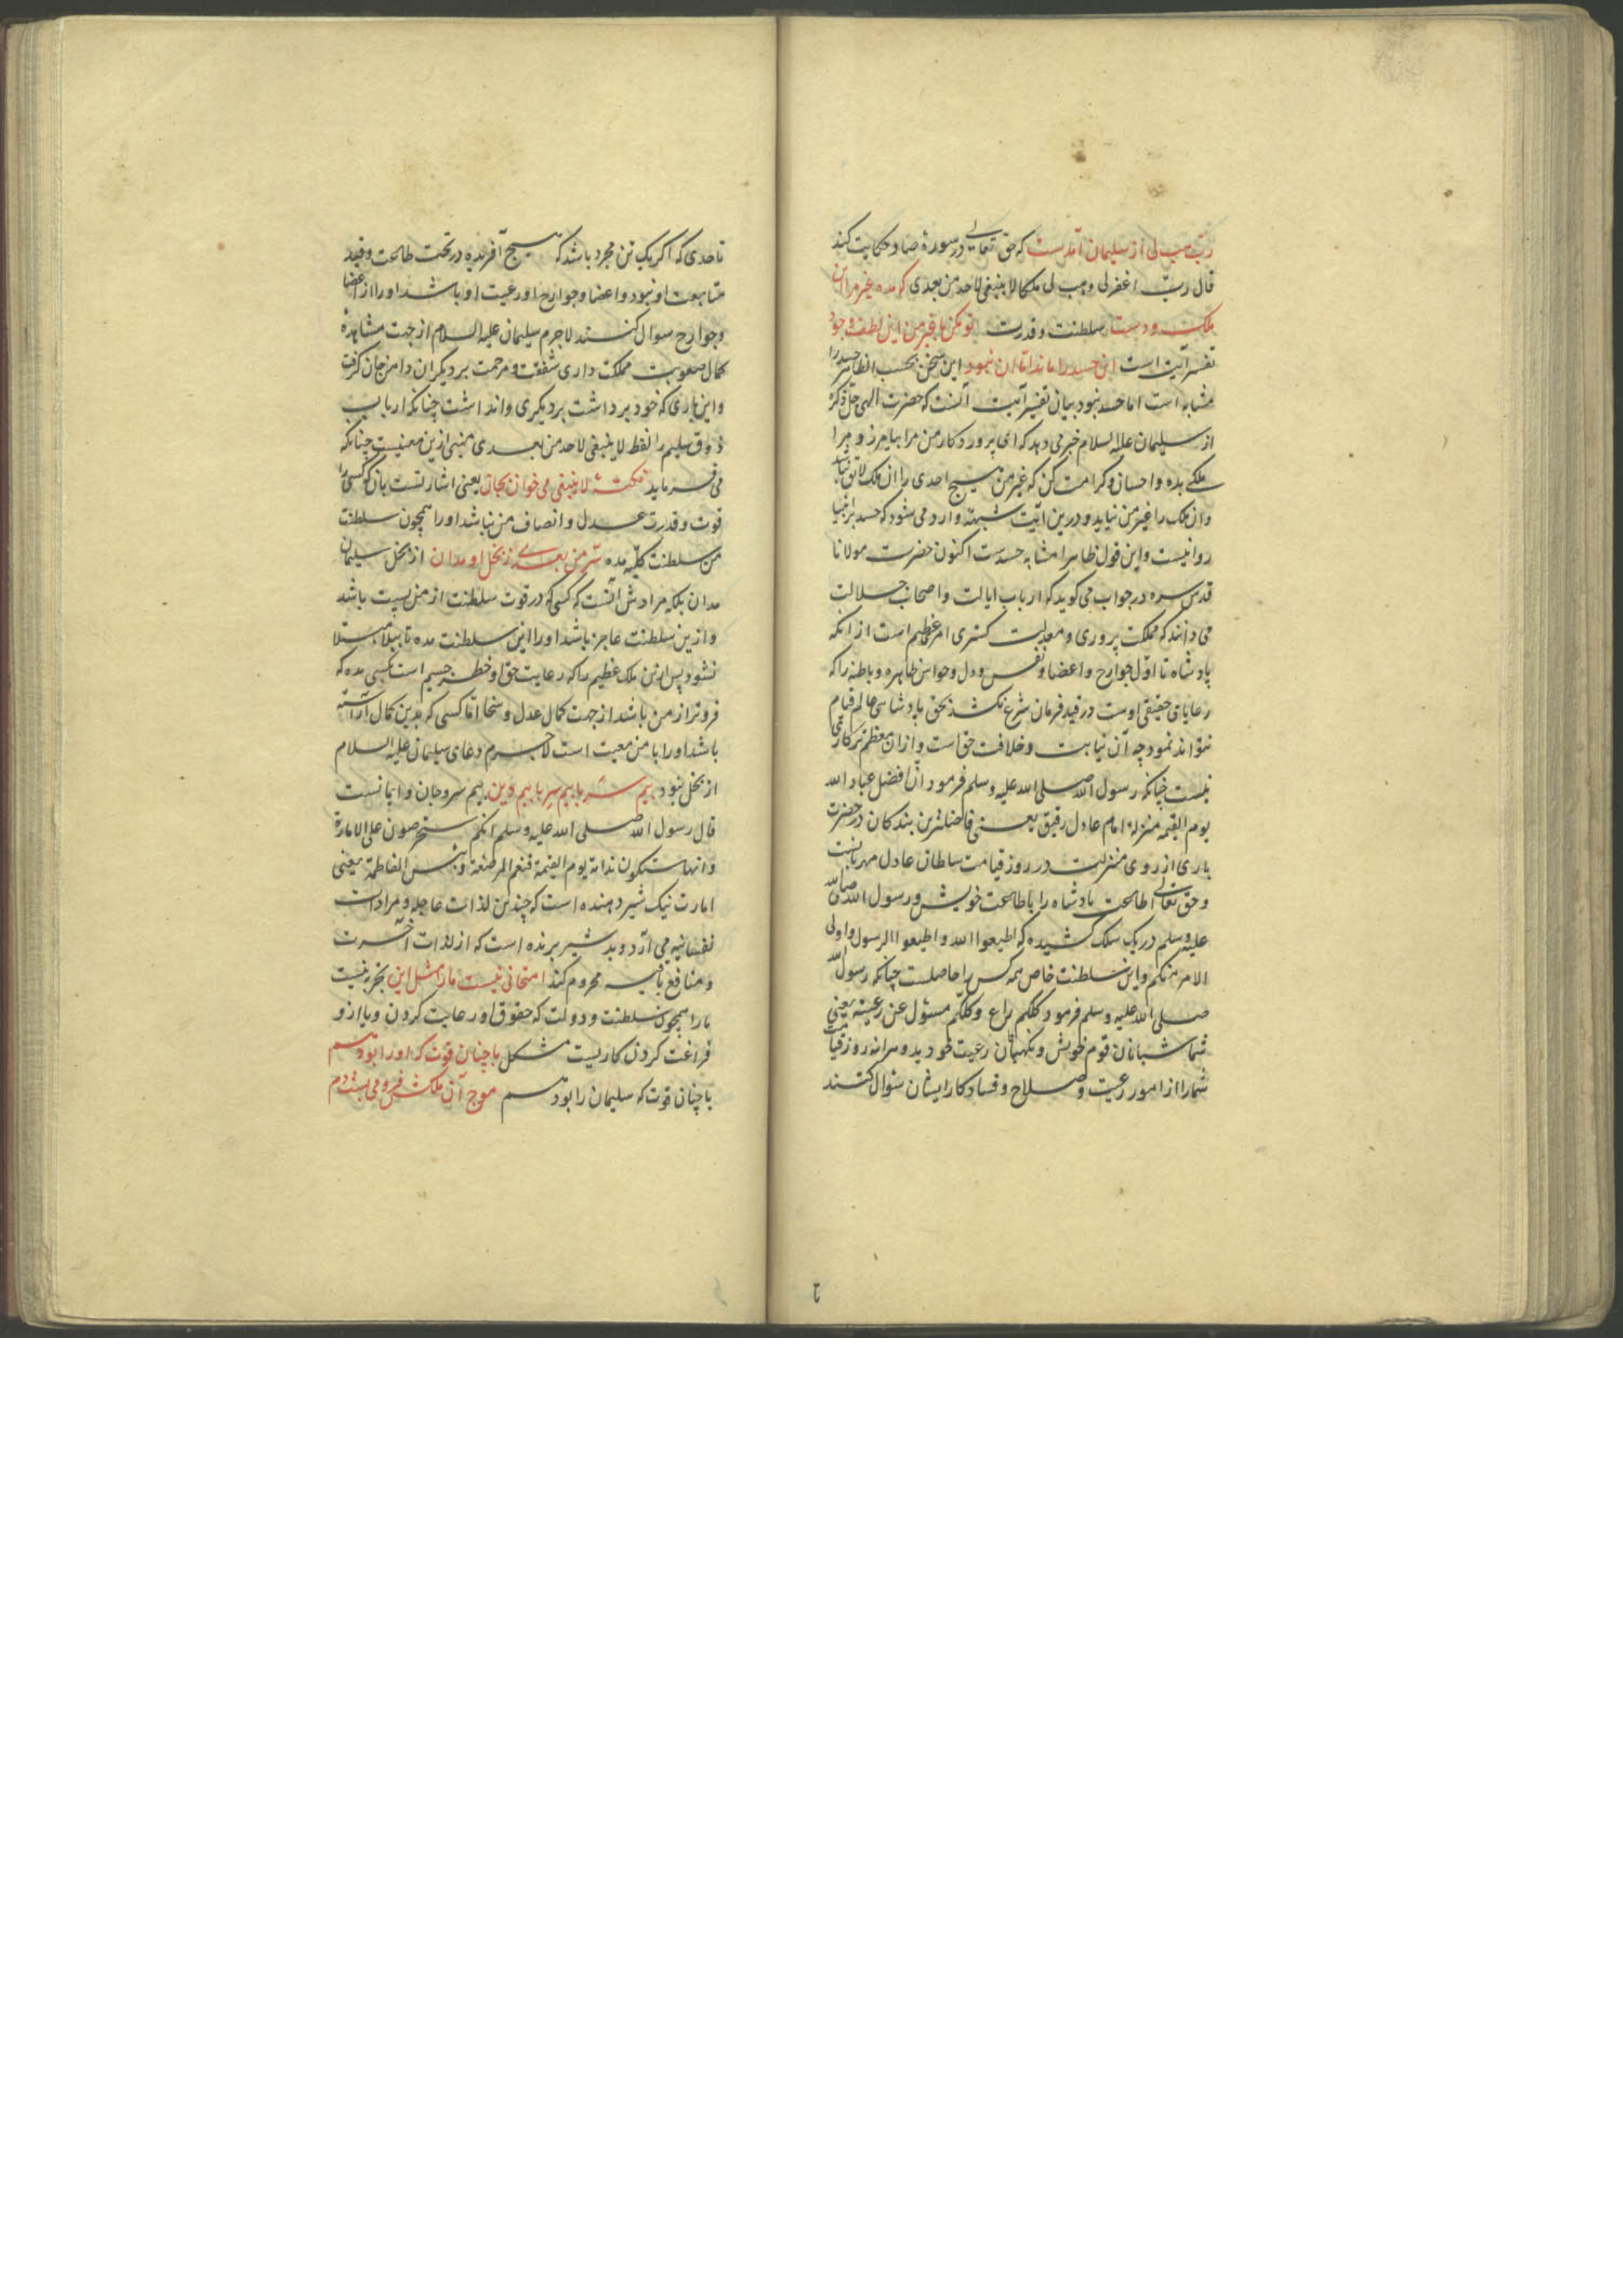 ربّ هب لی از سلیمان آمدست که حق تعالی در سورهٔ صاد حکایت کند
قال ربّ اغفر لی وهب لی ملکا لا ینبغی لاحد من بعدی که مده غیر مرا این
ملکت و دست سلطنت و قدرت تو مکن با غیر من این لطف و جود
تفسیر آیت است این حسد را ماند اما آن نبود این سخن بحسب الظاهر حسد را
مشابه است اما حسد نبود بیان تفسیر آیت آنست که حضرت الهی جلّ ذکره
از سلیمان علیه السلام خبر می دهد که ای پرورد کار من مرا بیامرز و مرا
ملکی بده و احسان و کرامت کن که غیر من هیچ احدی را آن ملک لایق نباشد
و آن ملک را غیر من نیاید و درین آیت شبهه وارد می شود که حسد بر انبیا
روا نیست و این قول ظاهرا مشابه حسدست اکنون حضرت مولانا
قدس سره در جواب می کوید که ارباب ایالت و اصحاب جلالت
می دانند که مملکت پروری و معدلت کستری امر عظیم است از انکه
پادشاه تا اوّل جوارح و اعضا و نفس و دل و حواس ظاهره و باطنه را که
رعایای حقیقی اوست در قید فرمان شرع نکشد بحق پادشاهی عالم قیام
نتواند نمود چه آن نیابت و خلافت حق است و ازان معظم تر کاری
نیست چنانکه رسول الله صلی الله علیه وسلم فرمود ان افضل عباد الله
یوم القیمه منزلة امام عادل رفیق یعنی فاضلترین بندکان در حضرت
باری از روی منزلت در روز قیامت سلطان عادل مهربانست
و حق تعالی اطاعت پادشاه را با طاعت خویش و رسول الله صلی الله
علیه وسلم در یک سلک کشیده که اطیعوا الله و اطیعوا الرسول و اولی
الامر منکم و این سلطنت خاص همه کس را حاصلست چنانکه رسول الله
صلی الله علیه وسلم فرمود کلکم راع و کلکم مسئول عن رعیته یعنی
شما شبانان قوم خویش و نکهبان رعیت خودید و هرآینه روز قیامت
شما را از امور رعیت و صلاح و فساد کار ایشان سؤال کنند
تا حدی که اکر یک تن مجرد باشد که هیچ آفریده در تحت طاعت و قید
متابعت او نبود و اعضا و جوارح او رعیت او باشد او را از اعضا
و جوارح سوال کنند لاجرم سلیمان علیه السلام از جهت مشاهدهٔ
کمال صعوبت مملکت داری شفقت و مرحمت بر دیکران دامن جان کرفت
و این باری که خود برداشت بر دیکری روا نداشت چنانکه ارباب
ذوق سلیم را لفظ لا ینبغی لاحد من بعدی منبی ازین معنیست چنانکه
می فرماید نکتهٔ لا ینبغی می خوان بجان یعنی اشارتست بآن که کسی را
قوت و قدرت عدل و انصاف من نباشد او را همچون سلطنت
من سلطنت کلیه مده سرّ من بعدی ز بخل او مدان از بخل سلیمان
مدان بلکه مرادش آنست که کسی که در قوت سلطنت از من پست باشد
و ازین سلطنت عاجز باشد او را این سلطنت مده تا ببلا مبتلا
نشود پس این ملک عظیم را که رعایت حق او خطر جسیم است بکسی مده که
فروتر از من باشد از جهت کمال عدل و سخا اما کسی که بدین کمال آراسته
باشد او را با من معیت است لاجرم دعای سلیمان علیه السلام
از بخل نبود بیم سر با بیم سرّ با بیم دین بیم سر و جان و ایمانست
قال رسول الله صلی الله علیه وسلم انکم ستحرصون علی الامارة
و انها ستکون ندامة یوم القیمة فنعم المرضعة و بئس الفاطمة یعنی
امارت نیک شیر دهنده است که چندین لذات عاجله و مرادات
نفسانیه می آرد و بد شیر برنده است که از لذات آخرت
و منافع باقیه محروم کند امتحانی نیست ما را مثل این تجربه نیست
ما را همچون سلطنت و دولت که حقوق او رعایت کردن و یا ازو
فراغت کردن کاریست مشکل با چنان قوّت که او را بود هم
با چنان قوت که سلیمان را بود هم موج آن ملکش فرو می بست دم